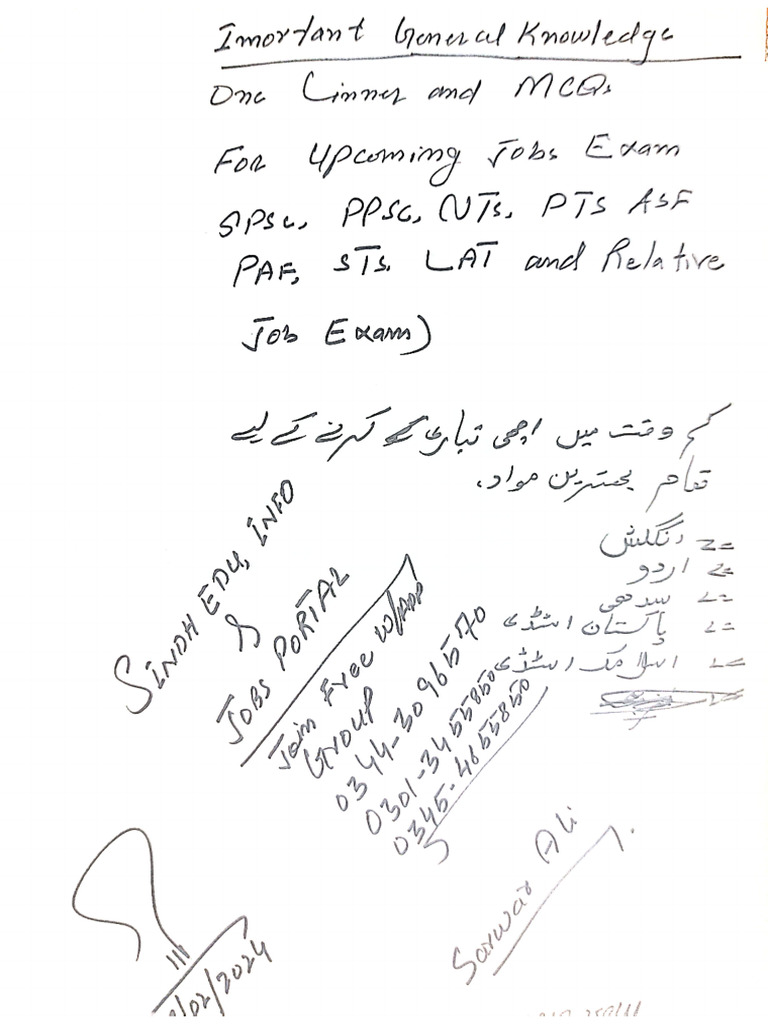 Imortant General Knowledge
One Linner and MCQs
For Upcoming Jobs Exam
SPSC, PPSC, NTS, PTS ASF
PAF, STS, LAT and Relative
Job Exam)
کم وقت میں اچھی تیاری کرنے کے لیے
تمام بہترین مواد۔
انگلش
اردو
سندھی
پاکستان اسٹڈی
اسلامک اسٹڈی
SINDH EDU, INFO
&
JOBS PORTAL
Join Free W/App
Group
0344-3096570
0301-3455850
0345-4655850
Sarwar Ali
/02/2024